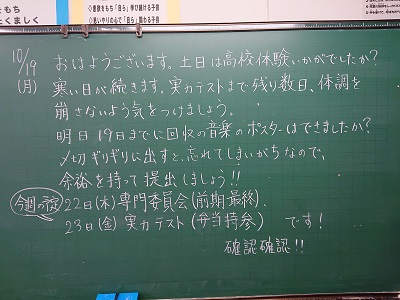 をもち
たくましく
◇意欲をもち「自ら」学び続ける子供
◇思いやりの心で「自ら」
10/19
(月)
おはようございます。土日は高校体験いかがでしたか?
寒い日が続きます。実力テストまで残り数日、体調を
崩さないよう気をつけましょう。
明日19日までに回収の音楽のポスターはできましたか?
〆切ギリギリに出すと、忘れてしまいがちなので、
余裕を持って提出しましょう!!
今週の予定
22日(木)専門委員会(前期最終)、
23日(金)実力テスト(弁当持参) です!
確認確認!!